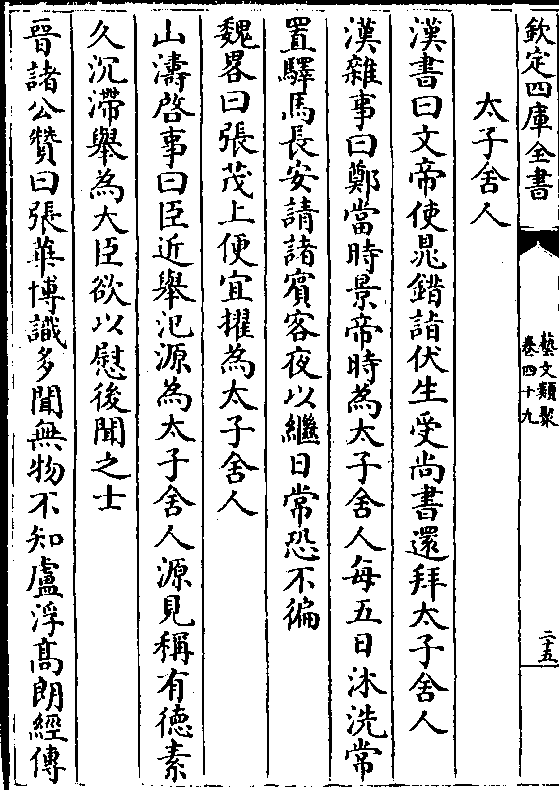 欽定四庫全書
藝文類聚
卷四十九
二十五
太子舍人
漢書曰文帝使鼂錯詣伏生受尚書還拜太子舍人
漢雜事曰鄭當時景帝時為太子舍人每五日沐洗常
置驛馬長安請諸賓客夜以繼日常恐不徧
魏畧曰張茂上便宜擢為太子舍人
山濤啓事曰臣近舉汜源為太子舍人源見稱有徳素
久沉滯舉為大臣欲以慰後聞之士
晉諸公贊曰張華博識多聞無物不知盧浮髙朗經傳